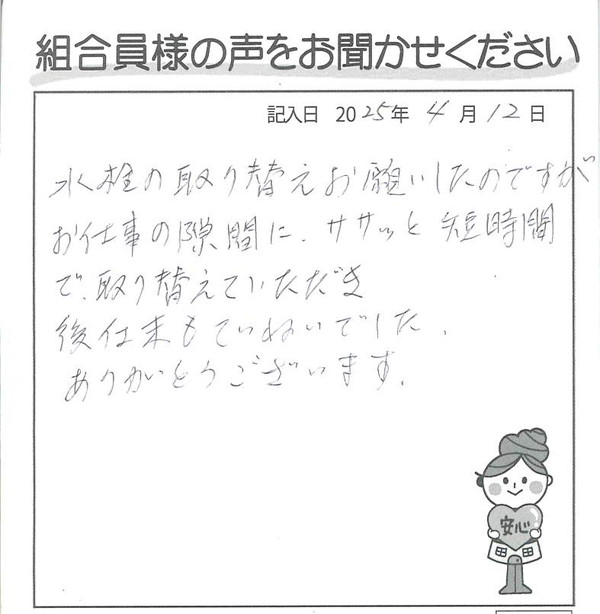 組合員様の声をお聞かせください
記入日 2025年 4月 12日
水栓の取り替えお願いしたのですが
お仕事の隙間に、ササッと短時間
で、取り替えていただき
後仕末もていねいでした。
ありがとうございます。
安心